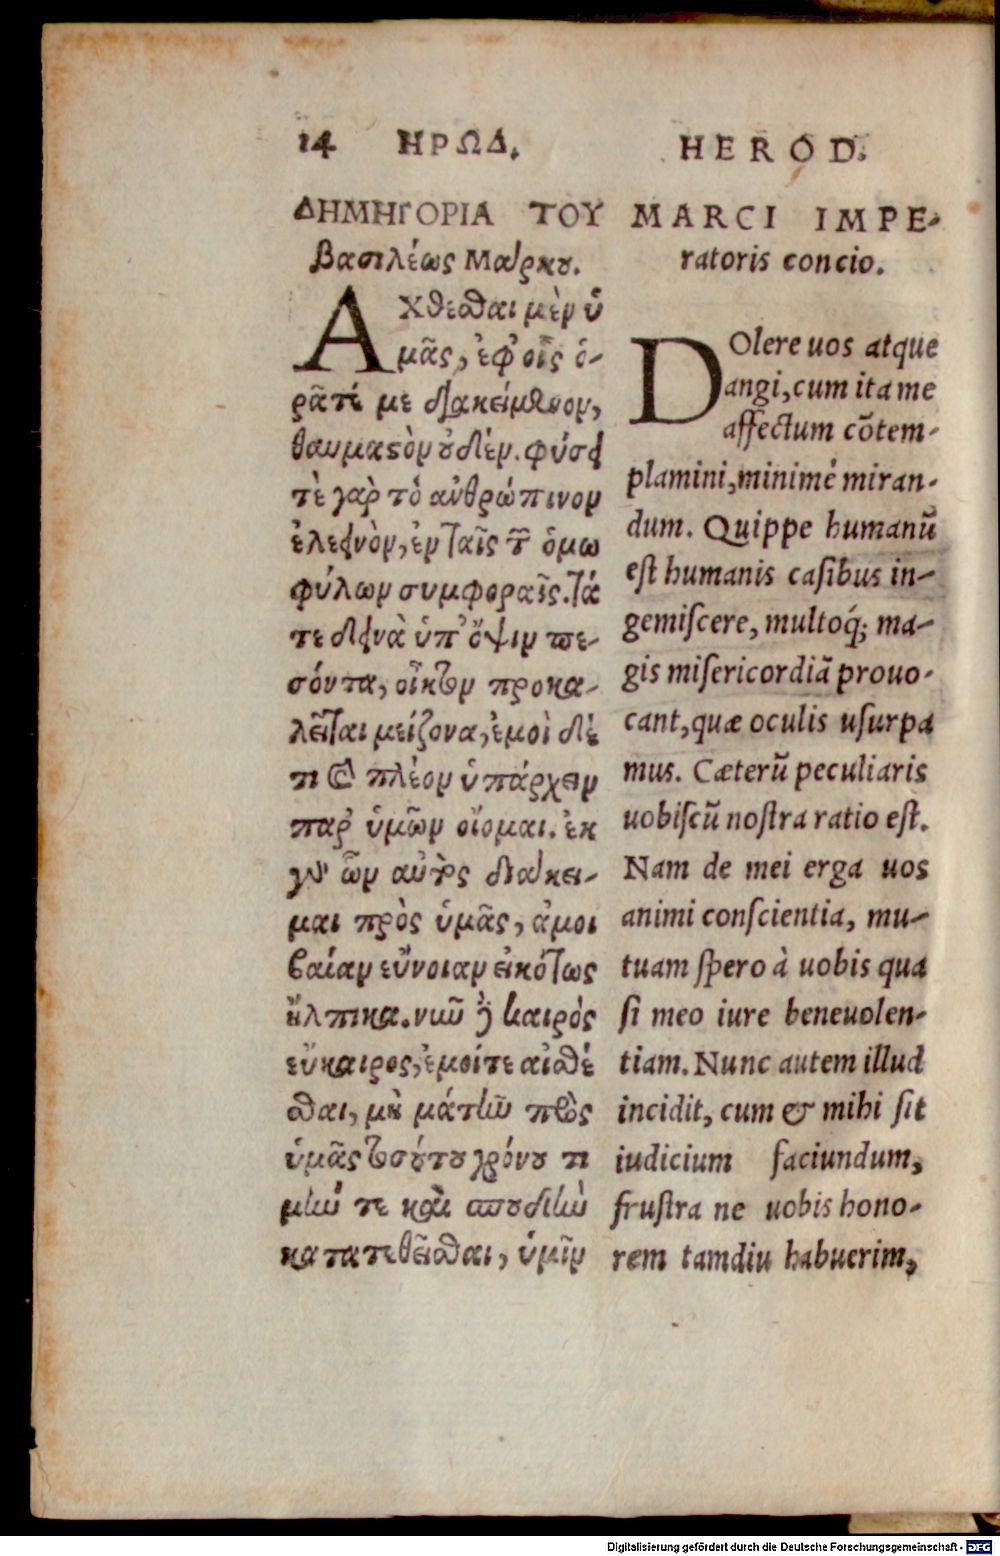 14 ΗΡΩΔ.
ΔΗΜΗΓΟΡΙΑ ΤΟΥ
βασιλέως Μάρκου.
ΑΧθεσθαι μὲν ὑ
μᾶς, ἐφ' οἷς ὁ-
ρᾶτέ με διακείμενον,
θαυμαστὸν οὐδέν. φύσει
τε γὰρ τὸ ἀνθρώπινον
ἐλεεινὸν, ἐν ταῖς τῶν ὁμο
φύλων συμφοραῖς. τά
τε δεινὰ ὑπ' ὄψιν πε-
σόντα, οἶκτον προκα-
λεῖται μείζονα, ἐμοὶ δέ
τι καὶ πλέον ὑπάρχειν
παρ' ὑμῶν οἴομαι. ἐκ
γὰρ ὧν αὐτὸς διάκει-
μαι πρὸς ὑμᾶς, ἀμοι
βαίαν εὔνοιαν εἰκότως
ἤλπικα. νῦν δὲ καιρὸς
εὔκαιρος, ἐμοί τε αἰσθέ
σθαι, μὴ μάτην πρὸς
ὑμᾶς τοσούτου χρόνου τι
μήν τε καὶ σπουδὴν
κατατεθεῖσθαι, ὑμῖν
HEROD.
MARCI IMPE-
ratoris concio.
DOlere uos atque
angi, cum ita me
affectum cōtem-
plamini, minimè miran-
dum. Quippe humanū
est humanis casibus in-
gemiscere, multoq́; ma-
gis misericordiā prouo-
cant, quæ oculis usurpa
mus. Cæterū peculiaris
uobiscū nostra ratio est.
Nam de mei erga uos
animi conscientia, mu-
tuam spero à uobis qua
si meo iure beneuolen-
tiam. Nunc autem illud
incidit, cum & mihi sit
iudicium faciundum,
frustra ne uobis hono-
rem tamdiu habuerim,
Digitalisierung gefördert durch die Deutsche Forschungsgemeinschaft - DFG